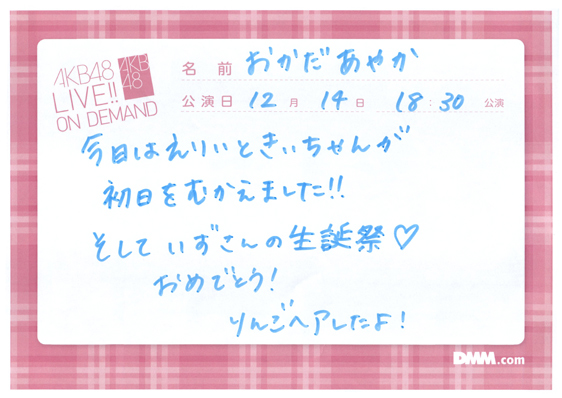 AKB48
LIVE!!
ON DEMAND
AKB
48
名前 おかだあやか
公演日 12月 14日 18:30 公演
今日はえりいときぃちゃんが
初日をむかえました!!
そしていずさんの生誕祭♡
おめでとう!
りんごヘアしたよ!
DMM.com